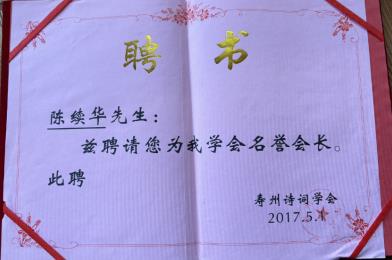 聘书
陈续华先生：
兹聘请您为我学会名誉会长。
此聘
寿州诗词学会
2017.5.1